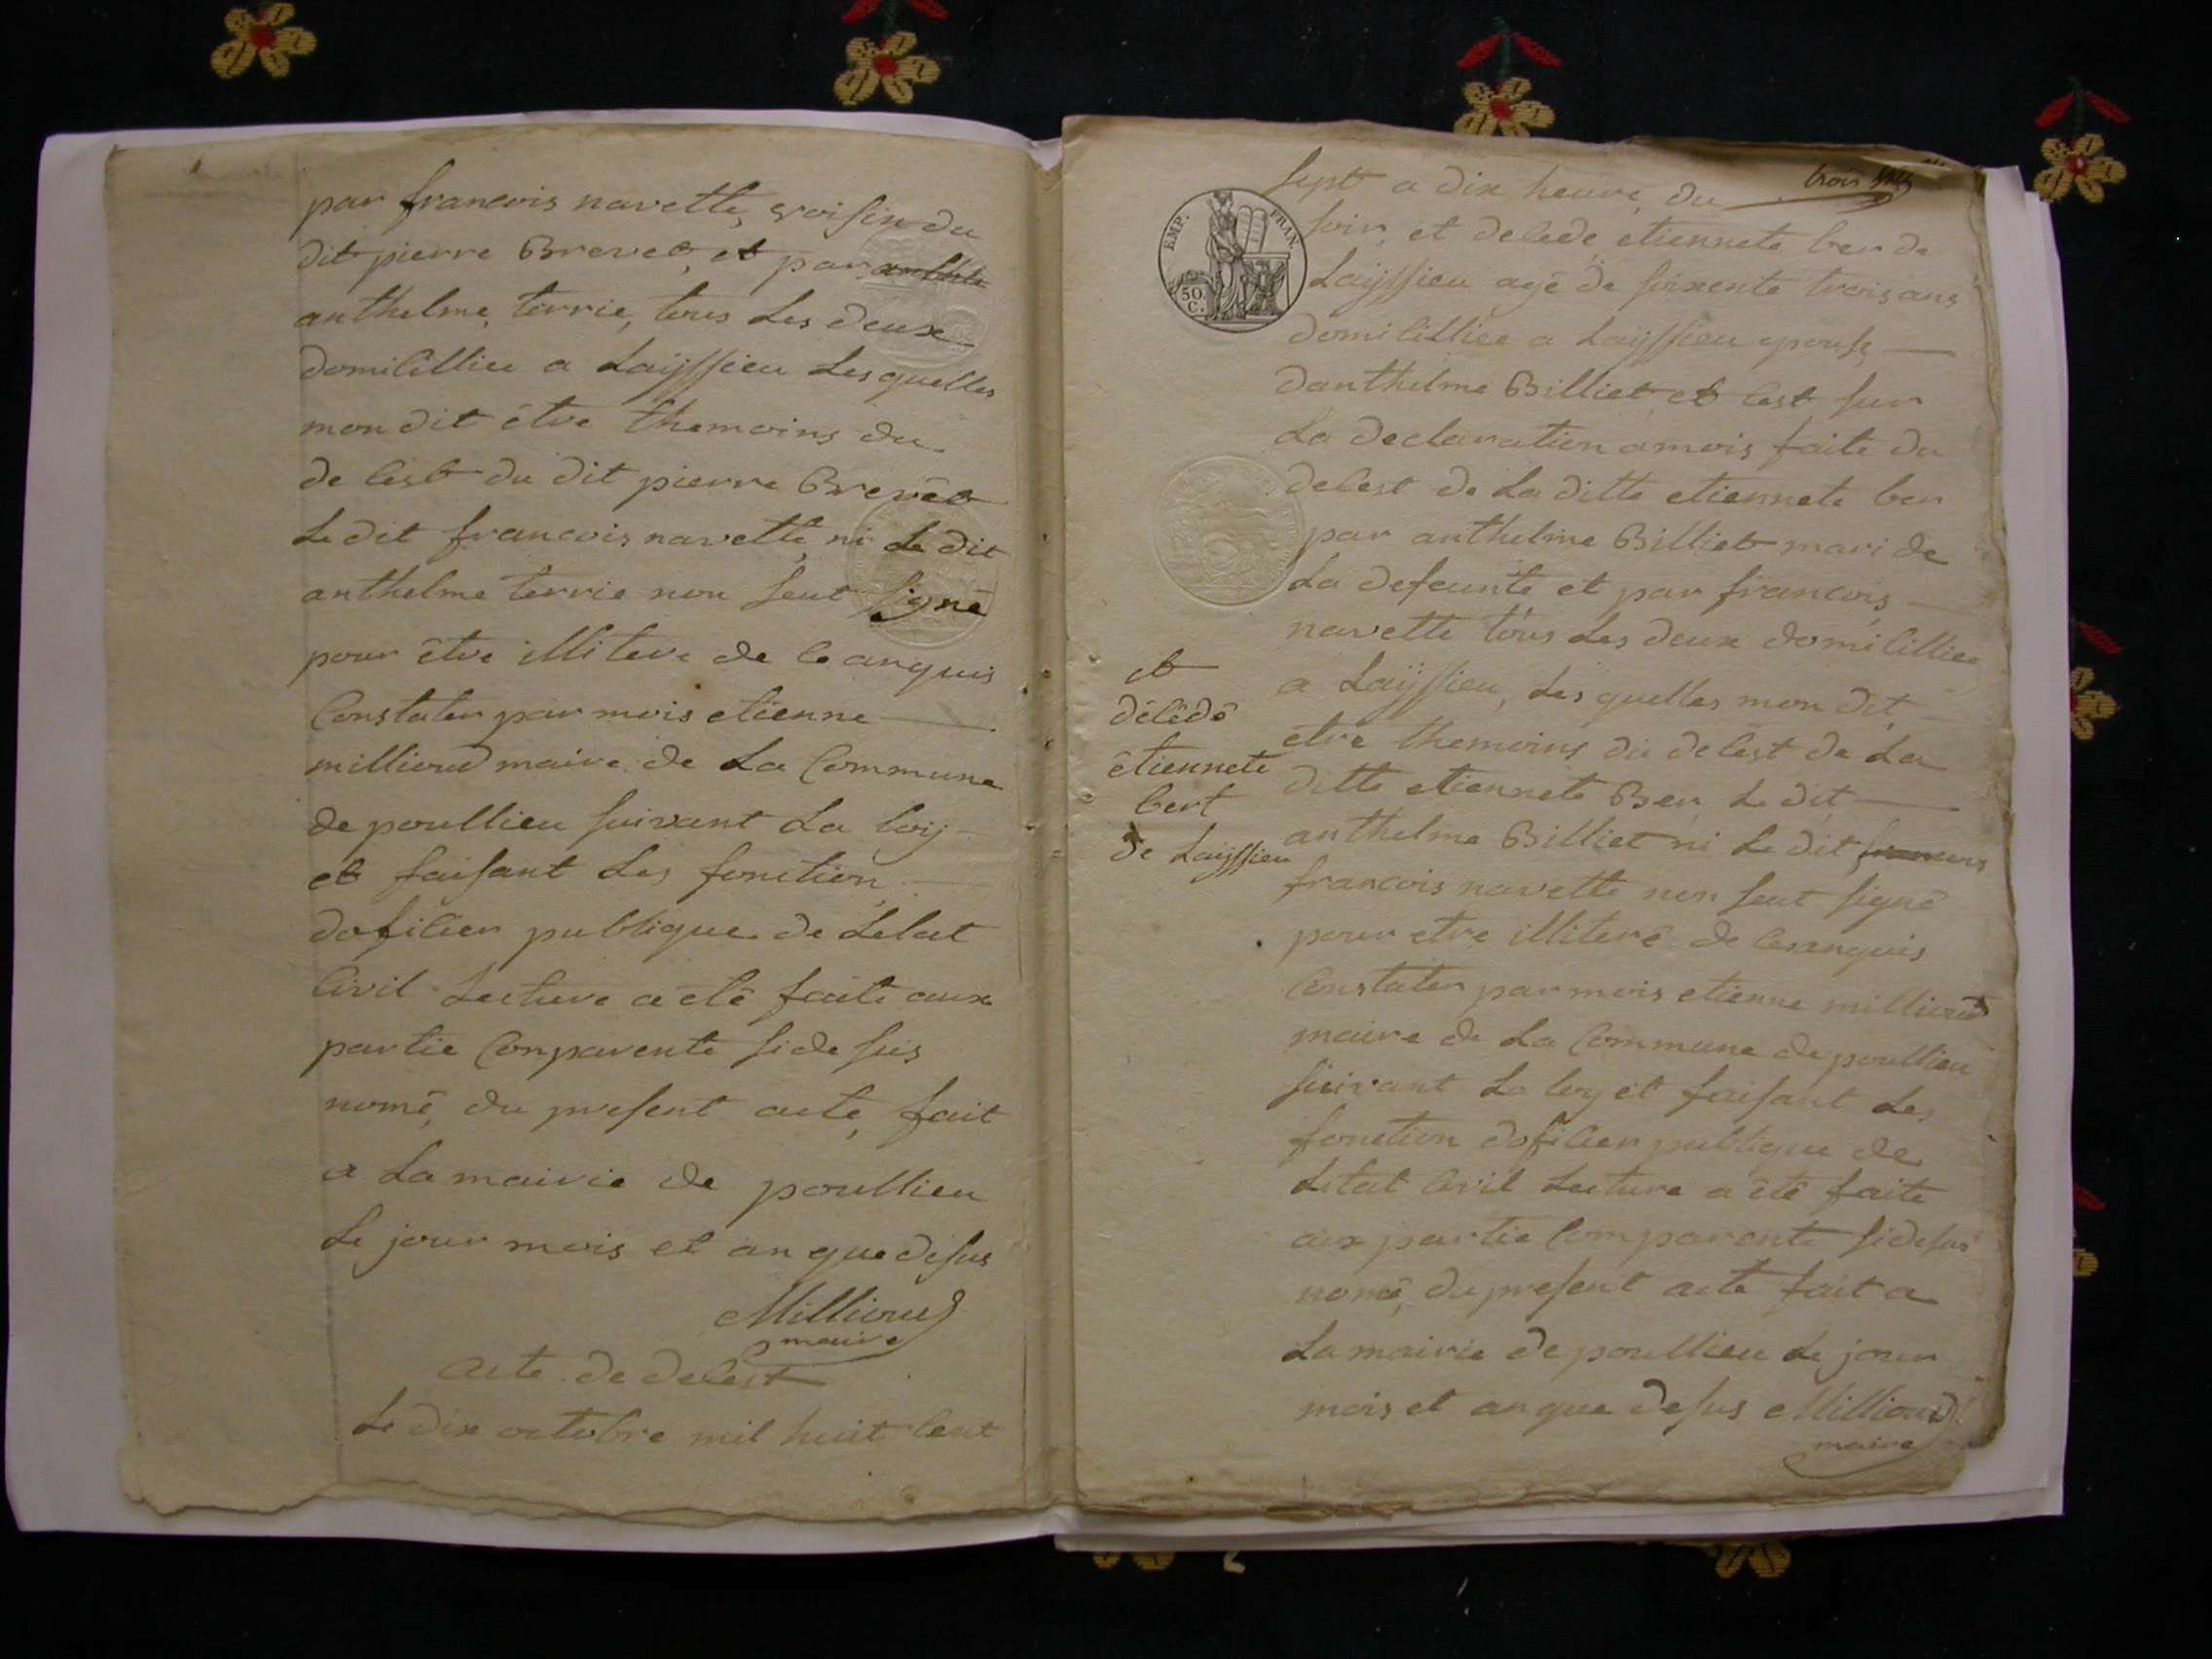 par francois navette, voisin du
dit pierre Brevet, et par
anthelme, terrie, tous les deux
domicilliee a Laijssieu Lesquelles
mon dit être themoins du
de cest du dit pierre Brevêt
Le dit francois navette, ni Le dit
anthelme terrie non seut signé
pour être illitere de ce anquis
Constater par mois etienne
millioud maire de La Commune
de poullieu suivant La loij
et faisant Les fonction
doficier publique de Letat
Civil Lecture a été faite aux
partie Conparente si de sus
nomé, du present acte, fait
a La mairie de poullieu
Le jour mois et an que desus
Millioud
maire
acte de decest
Le dix octobre mil huit Cent
trois
sept a dix heure, du
EMP. FRAN.
50. C.
soir, et decede etiennete ber de
Laijssieu agé de soixente trois ans
domicilliee a Laijssieu epouse
danthelme Billiet et cest sur
La declaration a mois faite du
decest de La ditte etiennete ber
par anthelme Billiet mari de
La defeunte et par francois
navette tous Les deux domicilliee
a Laijssieu, Les quelles mon dit
etre themoins du decest de La
ditte etiennete Ber, Le dit
anthelme Billiet ni Le dit francois
francois navette non seut signé
pour etre illiteré de ceanquis
Constater par mois etienne millioud
maire de La Commune de poullieu
suivant La loy et faisant Les
fonction doficier publique de
Letat Civil Lecture a été faite
aux partie Comparente sidesus
nomé, du present acte fait a
La mairie de poullieu Le jour
mois et an que desus Millioud
maire
et
décédé
êtiennete
bert
de Laijssieu